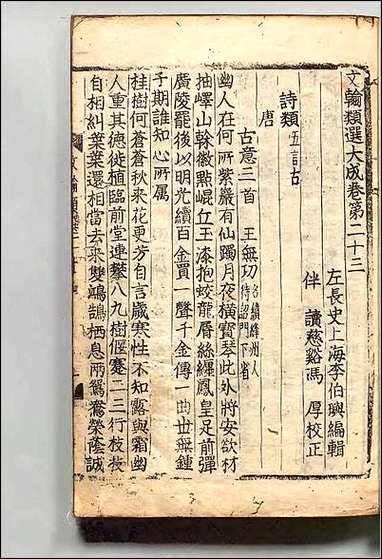 文翰類選大成卷第二十三
左長史上海李伯璵編輯
伴讀慈谿馮厚校正
詩類五言古
唐
古意三首 王無功名績絳州人待詔門下省
幽人在何所紫巖有仙躅月夜橫寶琴此外將安欲材
抽嶧山幹徽點崐丘玉漆抱蛟龍脣絲纏鳳皇足前彈
廣陵罷後以明光續百金買一聲千金傳一曲世無鍾
子期誰知心所属
桂樹何蒼蒼秋來花更芳自言歲寒性不知露與霜幽
人重其德徙植臨前堂連拳八九樹偃蹇二三行枝枝
自相糾葉葉還相當去來雙鴻鵠栖息兩鴛鴦榮蔭誠